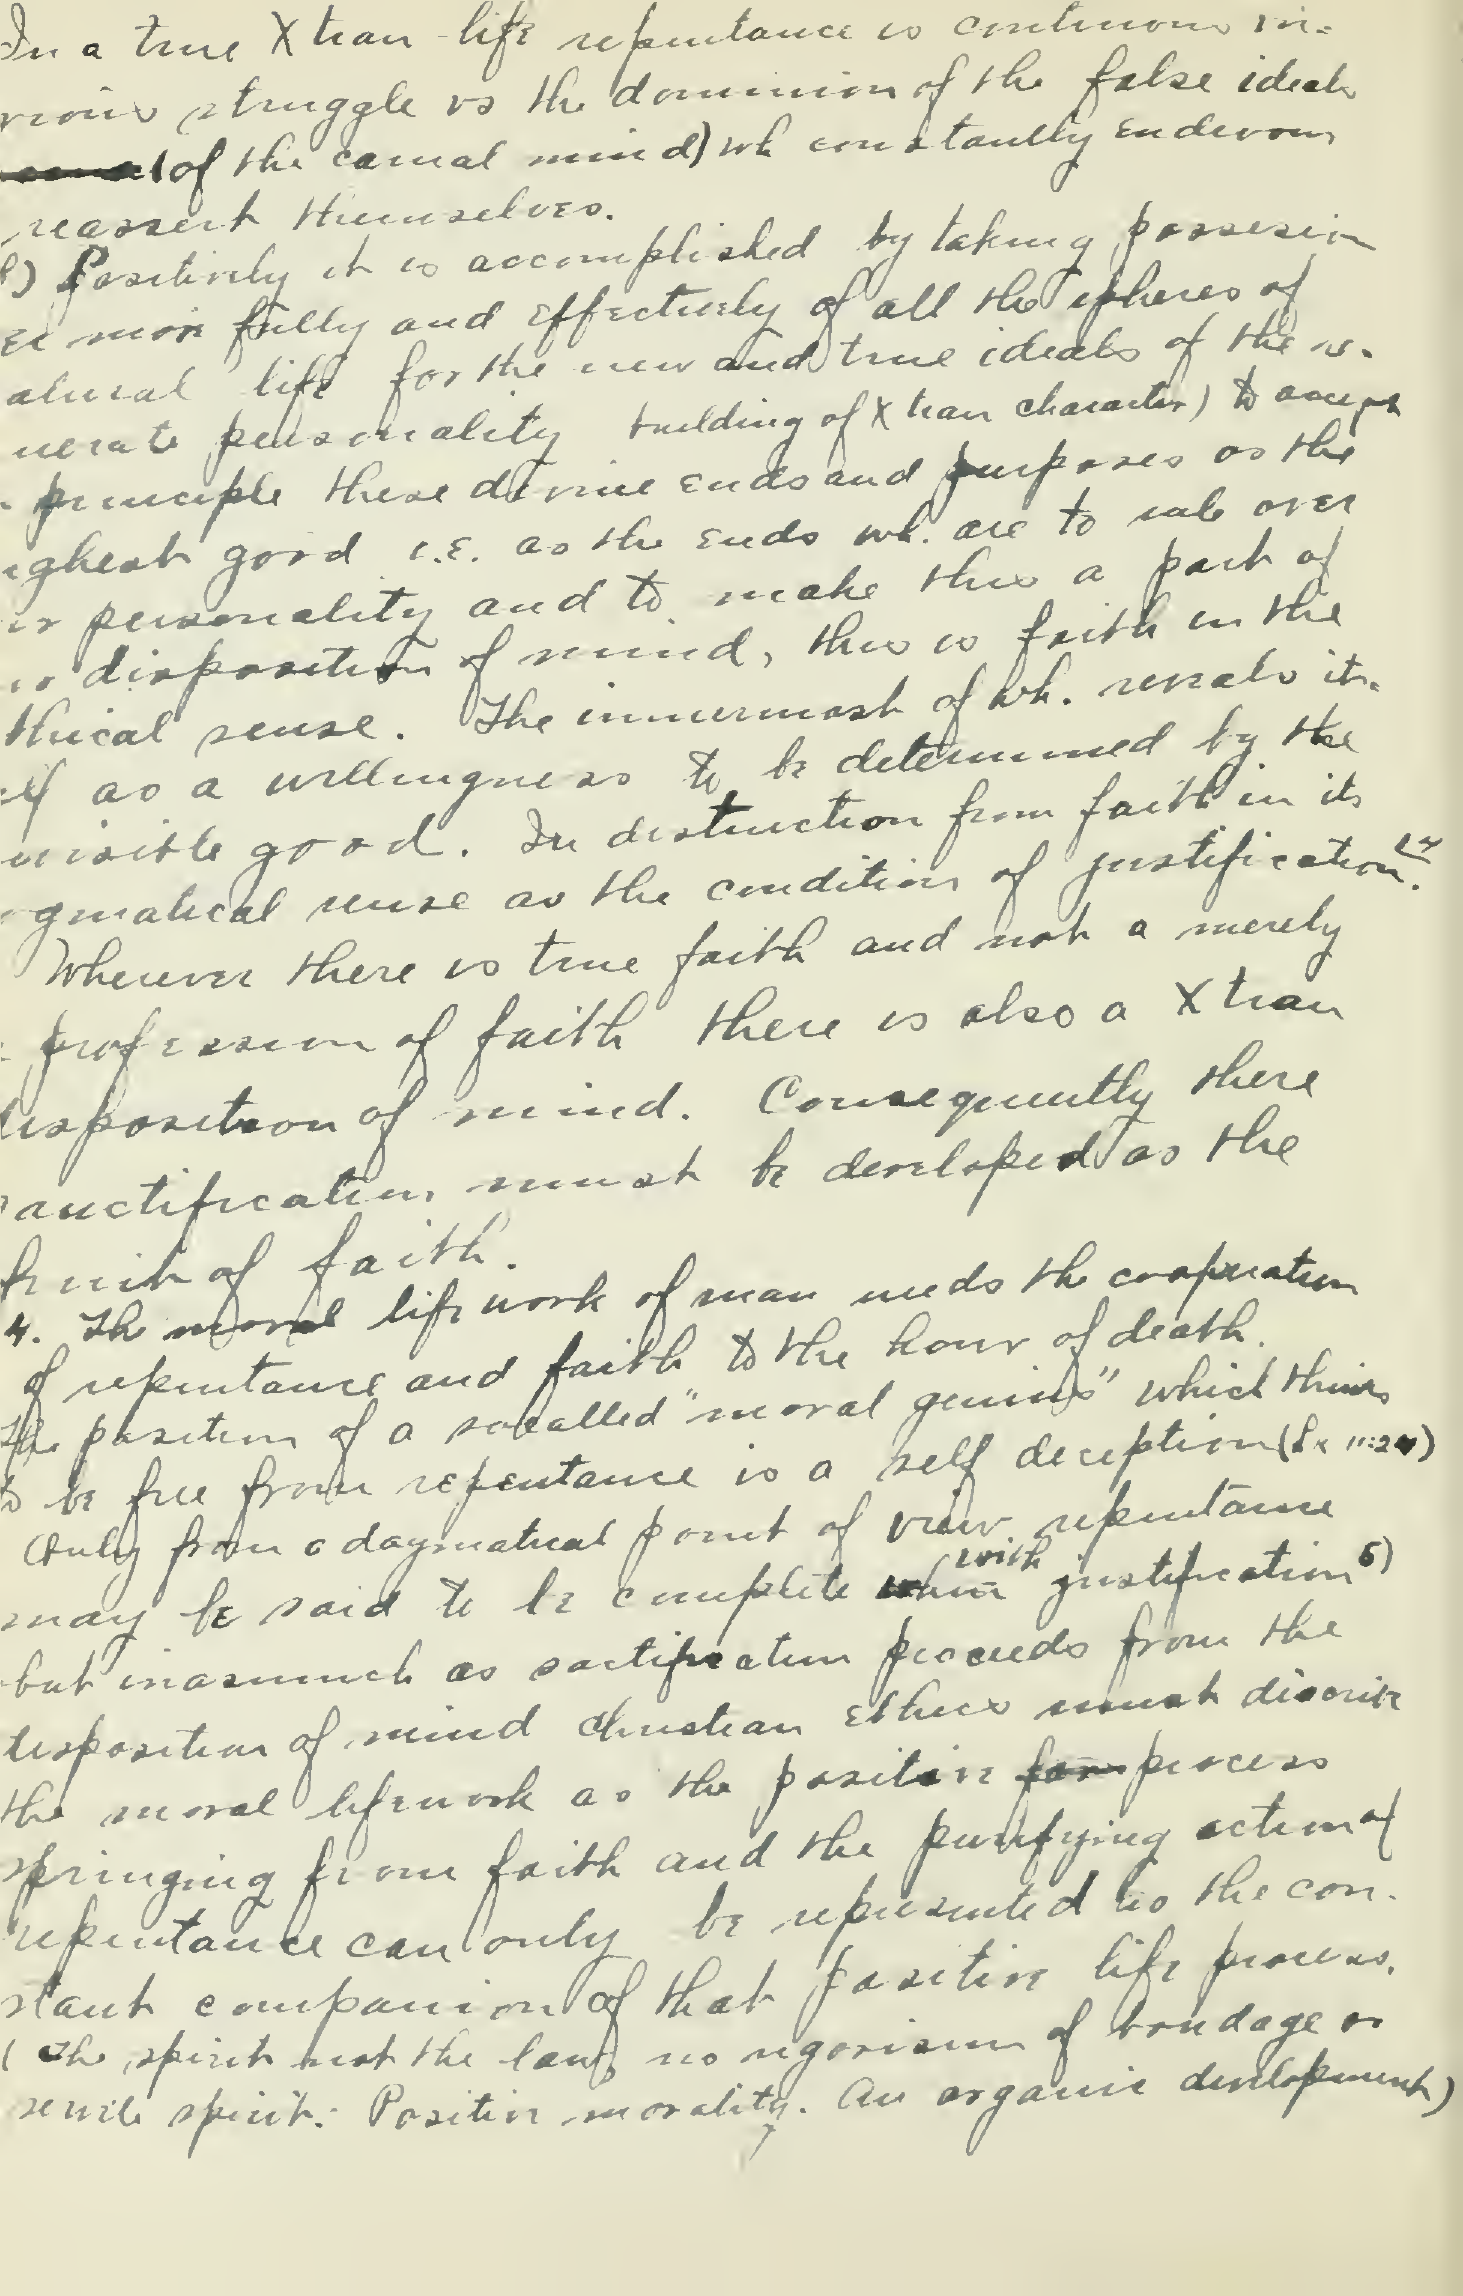 In a true Xtian life repentance is continuous vic-
rious struggle vs the dominion of the false ideals
(of the carnal mind) wh constantly endevour
reassert themselves.
) Positively it is accomplished by taking possesion
er more fully and effectively of all the spheres of
atural life for the new and true ideals of the re-
nerate personality building of Xtian character) to accept
principle these divine ends and purposes as the
ighest good i.e. as the ends wh. are to rule over
ur personality and to make this a part of
disposition of mind, this is faith in the
thical sense. The innermost of wh. reveals it-
elf as a willingness to be determined by the
nvisible good. In distinction from faith in its
ogmatical sense as the condition of justification.
Wherever there is true faith and not a merely
profession of faith there is also a Xtian
disposition of mind. Consequently there
sanctification must be developed as the
fruit of faith.
4. The moral life work of man needs the cooperation
of repentance and faith to the hour of death.
The position of a socalled "moral genius" which thinks
to be free from repentance is a self deception (Lk 11:24)
(Only from a dogmatical point of view repentance
may be said to be complete with justification 5)
but inasmuch as sactification proceeds from the
disposition of mind Christian Ethics must discribe
the moral lifework as the positive process
springing from faith and the purifying action of
repentance can only be represented as the con-
stant companion of that positive life process.
( The spirit not the law, no rigorism of bondage or
servile spirit. Positive morality. An organic development)